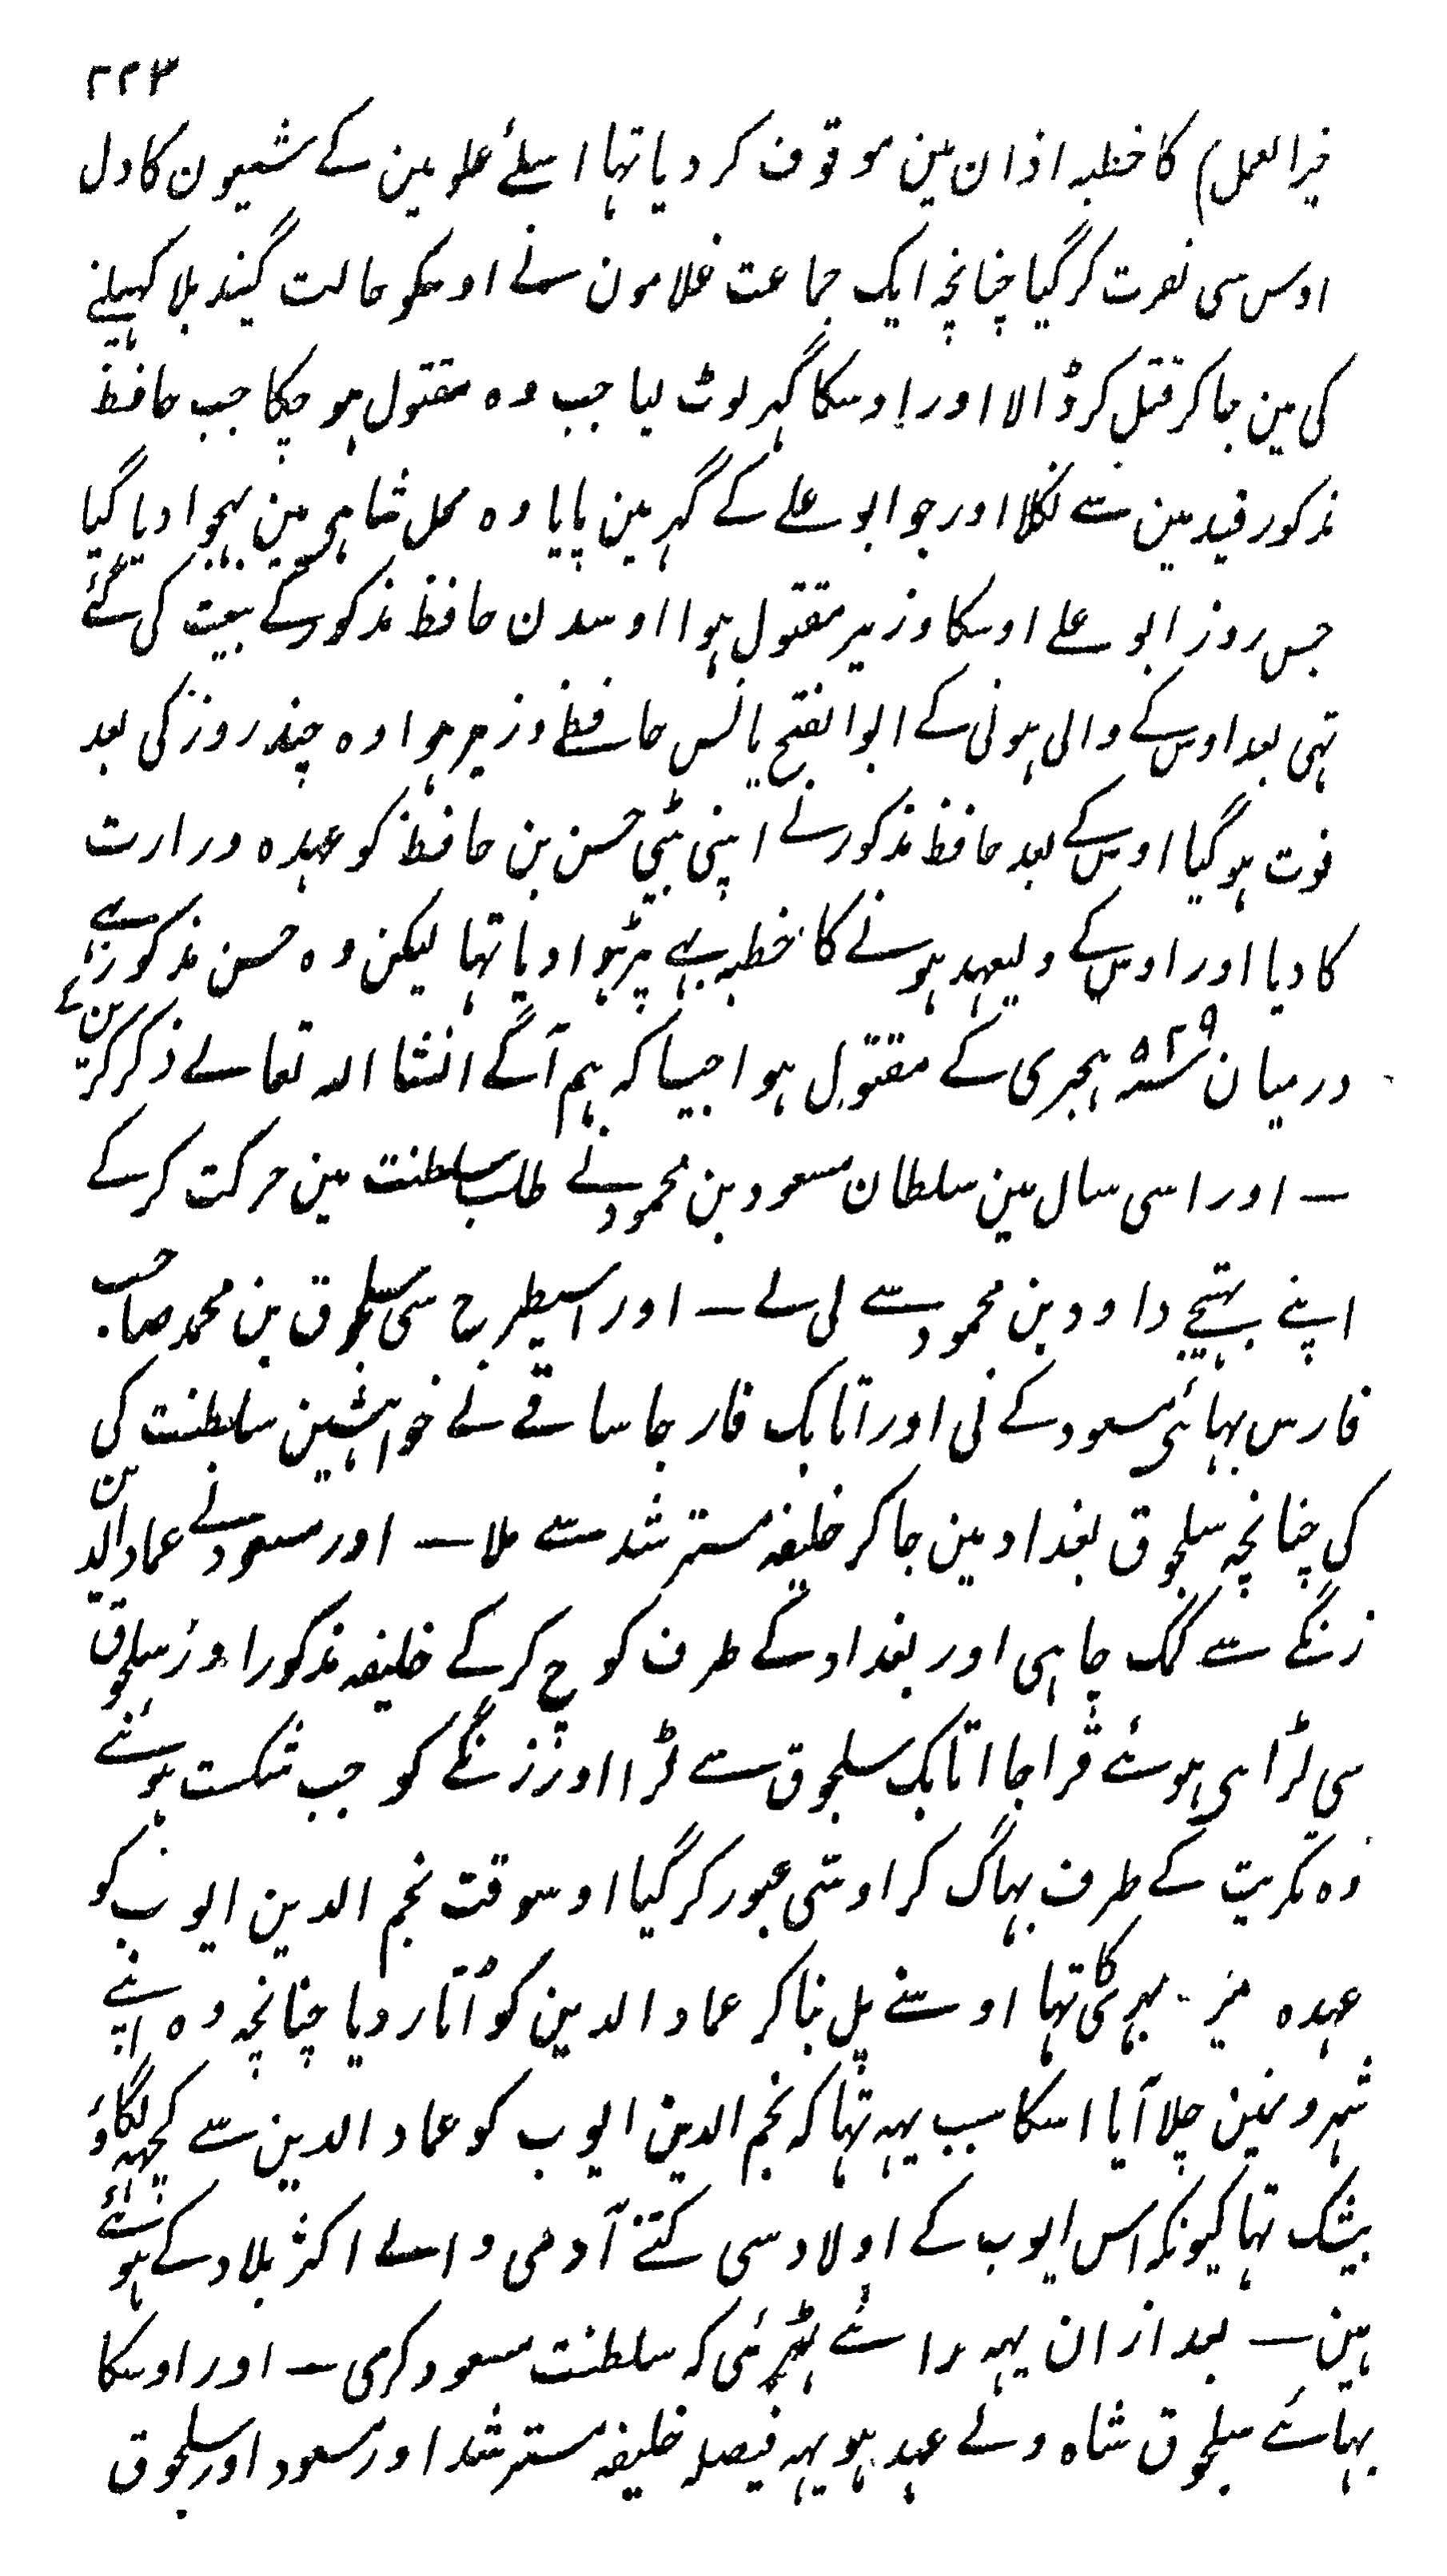 ۲۲۳
خیر العمل) کا خطبہ اذان مین موقوف کر دیا تہا اسلئے علویین کے شیعون کا دل
اوس سی نفرت کر گیا چنانچہ ایک جماعت غلامون نے اوسکو حالت گیند بلا کہیلنے
کی مین جا کر قتل کر ڈالا اور اوسکا گہر لوٹ لیا جب وہ مقتول ہو چکا جب حافظ
مذکور قید مین سے نکلا اور جو ابو علے کے گہر مین پایا وہ محل شاہی مین بہجوا دیا گیا
جس روز ابو علے اوسکا وزیر مقتول ہوا اوسدن حافظ مذکور کے بیعت کی گئے
تہی بعد اوس کے والی ہونی کے ابو الفتح یانس حافظے وزیر ہوا وہ چند روز کی بعد
فوت ہو گیا اوس کے بعد حافظ مذکور نے اپنی بیٹی حسن بن حافظ کو عہدہ وزارت
کا دیا اور اوس کے ولیعہد ہونے کا خطبہ بہے پڑہوا دیا تہا لیکن وہ حسن مذکور بہے
درمیان ۵۲۹ سنہ ہجری کے مقتول ہوا جیسا کہ ہم آگے انشا اللہ تعالے ذکر کرین گے
۔ اور اسی سال مین سلطان مسعود بن محمود نے طلب سلطنت مین حرکت کرکے
اپنے بہتیجے داود بن محمود سے لی لے ۔ اور اسیطرح سی سلجوق بن محمد صاحب
فارس بہائی مسعود کے نی اور اتابک قارجا ساقے نے خواہشین سلطنت کی
کی چنانچہ سلجوق بغداد مین جا کر خلیفہ مسترشد سے ملا ۔ اور مسعود نے عماد الدین
زنگے سے کمک چاہی اور بغداد کے طرف کوچ کرکے خلیفہ مذکور اور سلجوق
سی لڑای ہوئے قراجا اتابک سلجوق سے لڑا اور زنگے کو جب شکست ہوئے
وہ تکریت کے طرف بہاگ کر اوسی عبور کر گیا اوسوقت نجم الدین ایوب کو
عہدہ میر بہری کا تہا اوسنے پل بنا کر عماد الدین کو اُتار دیا چنانچہ وہ اپنے
شہرونمین چلا آیا اسکا سبب یہہ تہا کہ نجم الدین ایوب کو عماد الدین سے کچہہ لگاؤ
بیشک تہا کیونکہ اس ایوب کے اولاد سی کتنے آدمی والے اکثر بلاد کے ہوئے
ہین ۔ بعد ازان یہہ رائے ٹہرئی کہ سلطنت مسعود کری ۔ اور اوسکا
بہائے سلجوق شاہ ولے عہد ہو یہہ فیصلہ خلیفہ مسترشد اور مسعود اور سلجوق